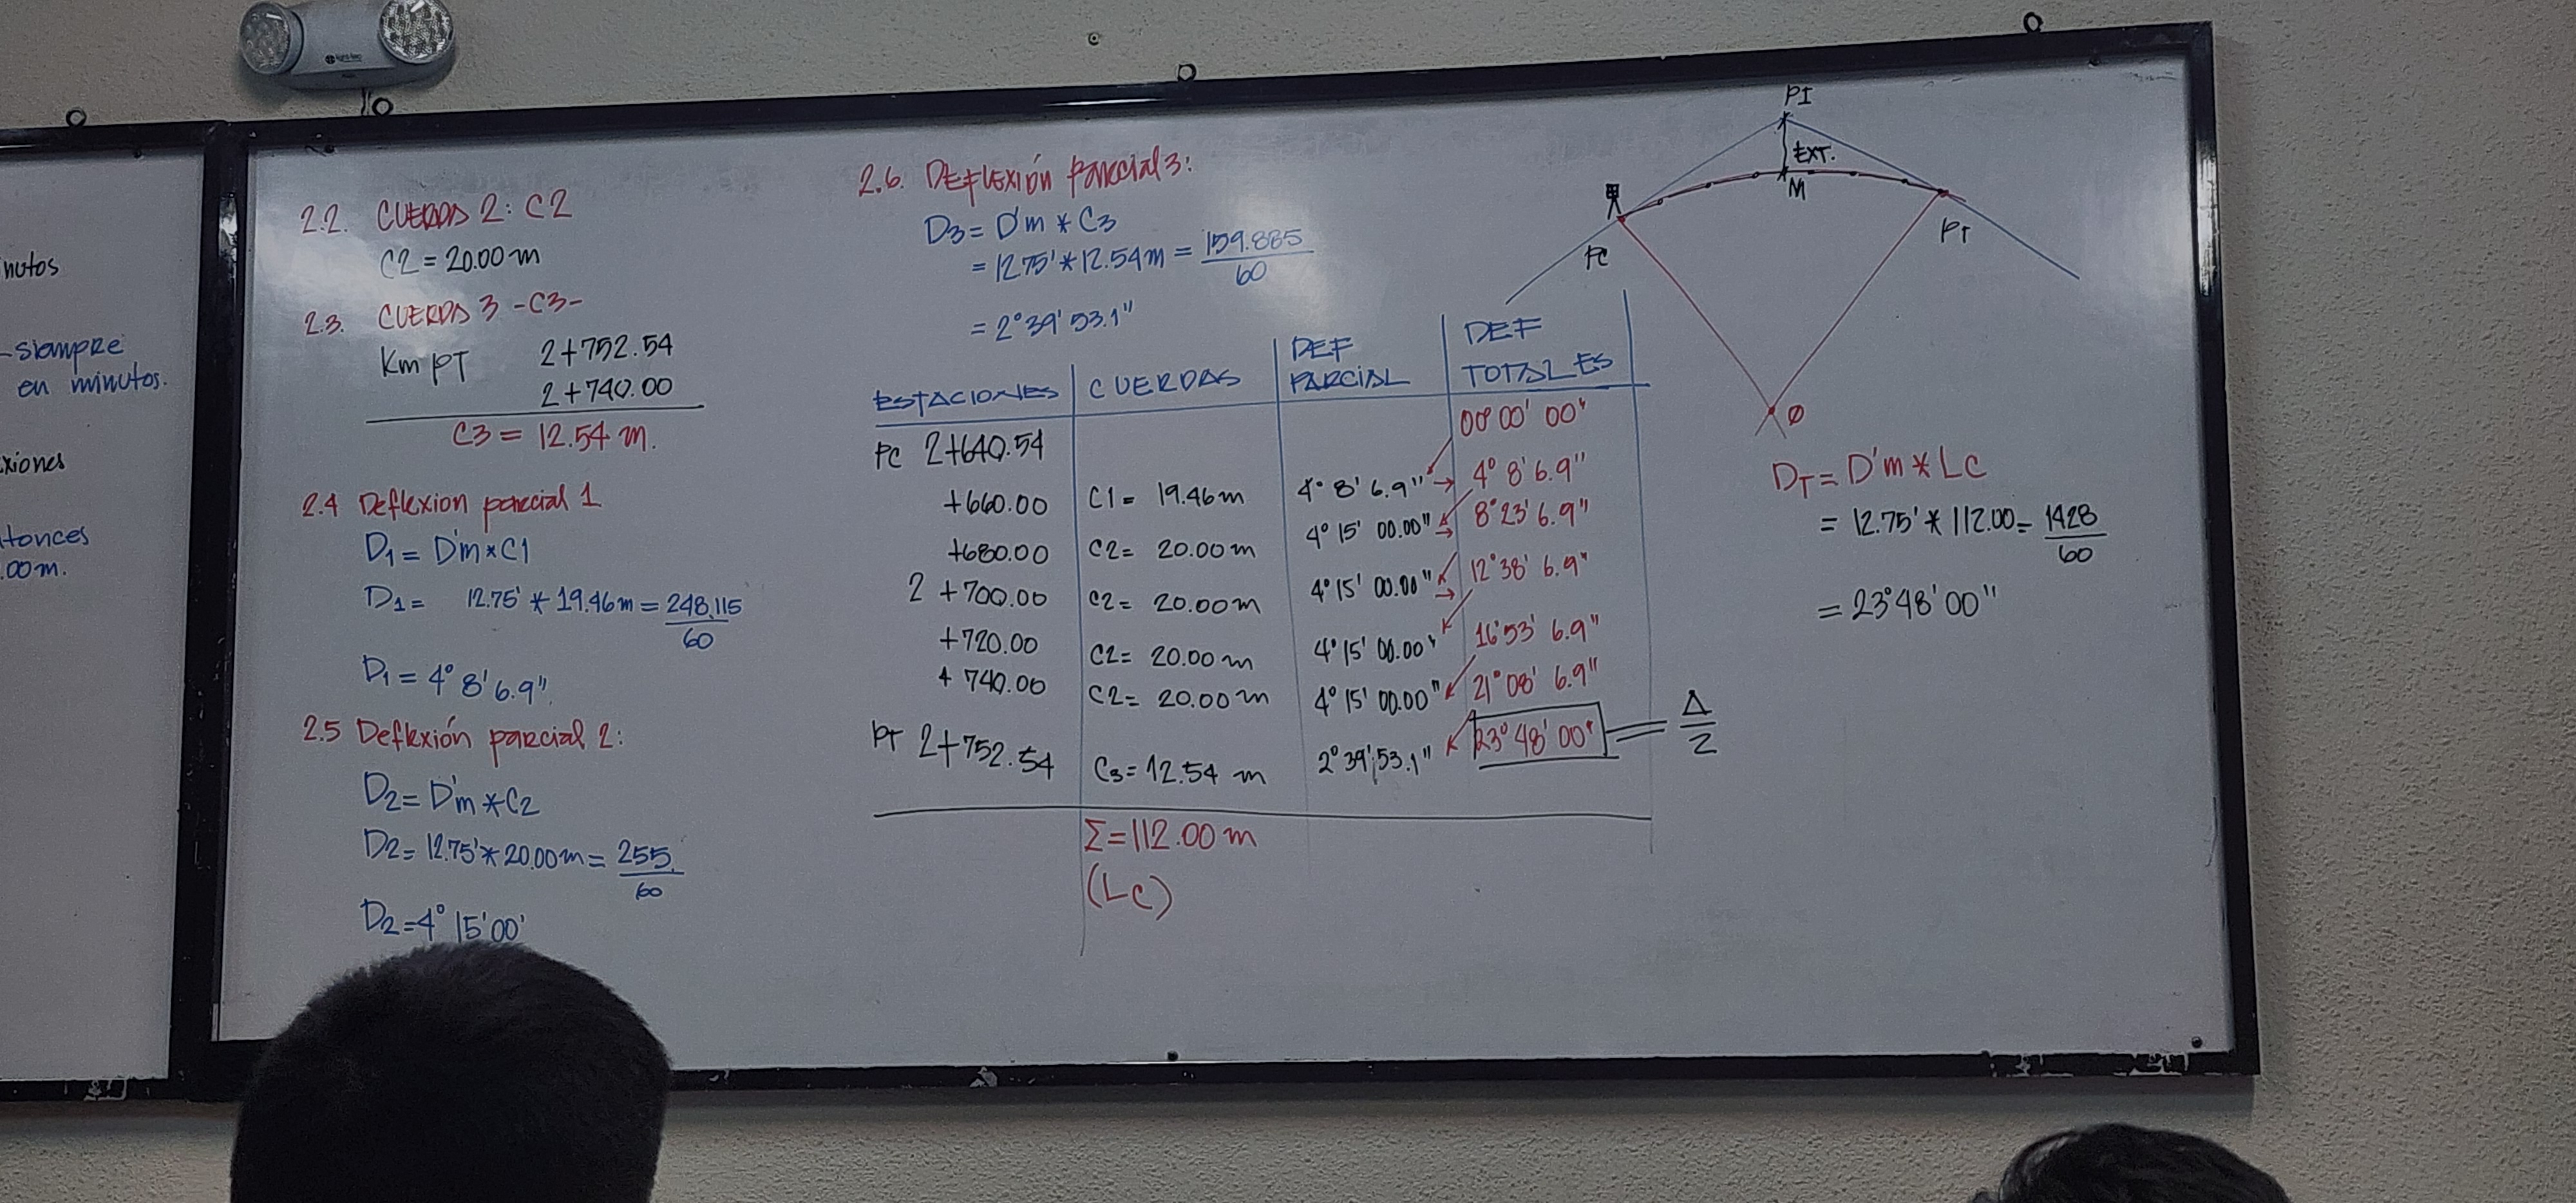 nutos
siempre
en minutos.
xiones
tonces
.00m.
2.2. CUERDA 2: C2
C2 = 20.00 m
2.3. CUERDA 3 -C3-
Km PT 2+752.54
2+740.00
C3 = 12.54 m.
2.4 Deflexion parcial 1
D1 = D'm*C1
D1 = 12.75' * 19.46m = 248.115
60
D1 = 4° 8' 6.9"
2.5 Deflexión parcial 2:
D2 = D'm*C2
D2= 12.75'*20.00m = 255.
60
D2=4° 15'00'
2.6. DEFLEXIÓN PARCIAL 3:
D3 = D'm * C3
= 12.75'*12.54m = 159.885
60
= 2°39'53.1"
ESTACIONES CUERDAS DEF PARCIAL DEF TOTALES
00° 00' 00"
PC 2+640.54
+660.00 C1 = 19.46m 4° 8' 6.9" → 4° 8' 6.9"
+680.00 C2= 20.00m 4° 15' 00.00" 8°23' 6.9"
2 +700.00 C2= 20.00m 4° 15' 00.00" 12°38' 6.9"
+720.00 C2= 20.00m 4° 15' 00.00" 16°53' 6.9"
+ 740.00 C2= 20.00m 4° 15' 00.00" 21°08' 6.9"
PT 2+752.54 C3= 12.54 m 2°39'53.1" 23°48'00" = Δ/2
Σ=112.00 m
(Lc)
PI
EXT.
M
PC
PT
Ø
DT = D'm * LC
= 12.75' * 112.00 = 1428
60
= 23°48'00"